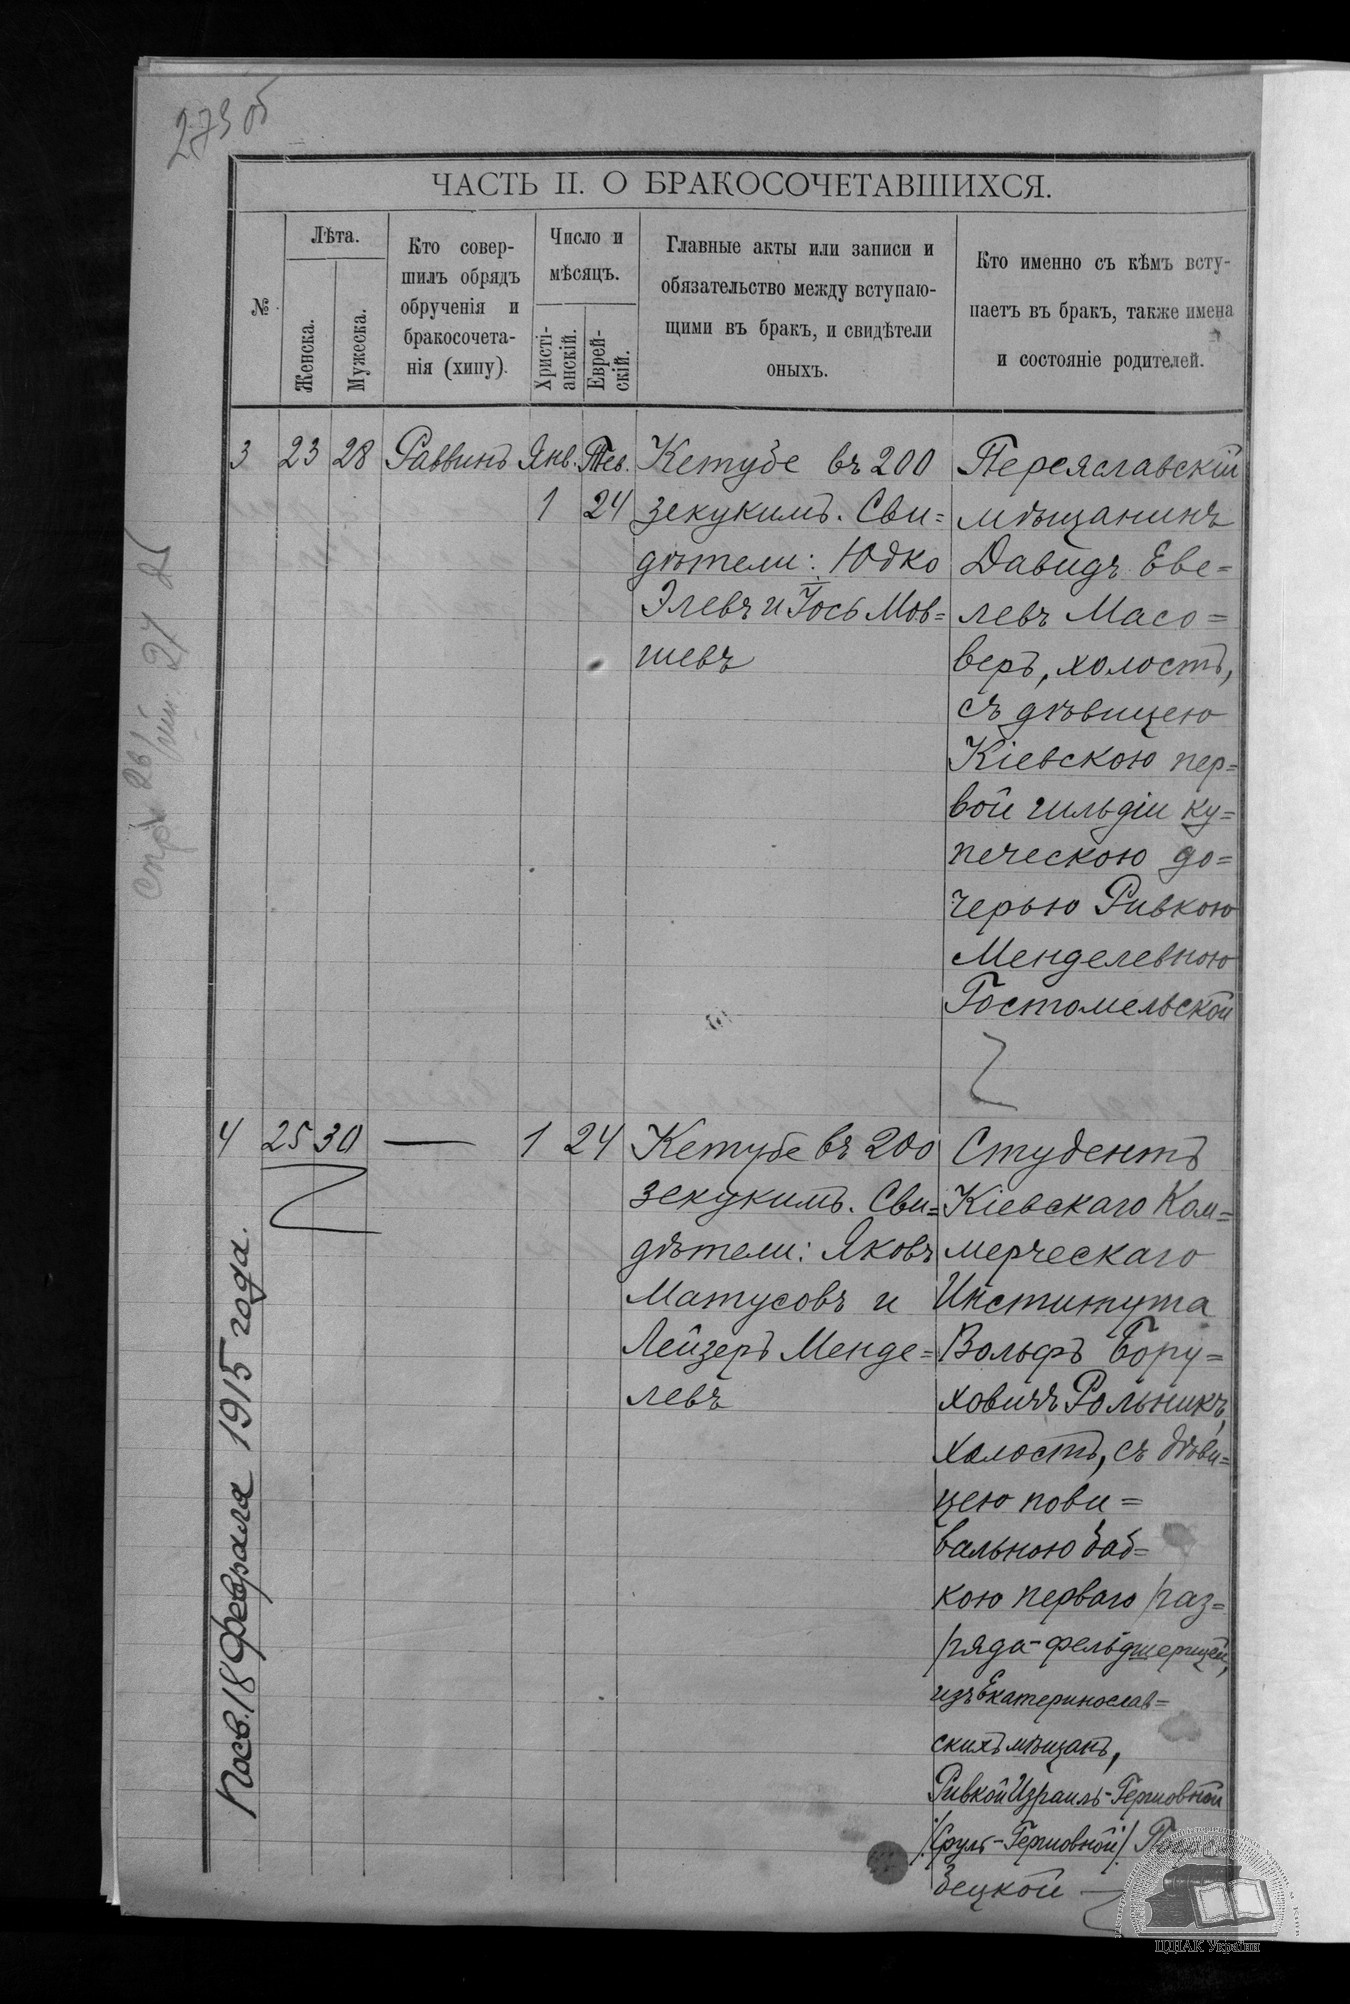 273 об
ЧАСТЬ II. О БРАКОСОЧЕТАВШИХСЯ.
№
Лѣта.
Женска.
Мужеска.
Кто совер-
шилъ обрядъ
обрученія и
бракосочета-
нія (хипу).
Число и
мѣсяцъ.
Христі-
анскій.
Еврей-
скій.
Главные акты или записи и
обязательство между вступаю-
щими въ бракъ, и свидѣтели
оныхъ.
Кто именно съ кѣмъ всту-
паетъ въ бракъ, также имена
и состояніе родителей.
3 23 28 Раввинъ Янв. Тев.
1 24
Кетубе въ 200
зекукимъ. Сви=
дѣтели: Юдко
Элевъ и Іось Мов=
шевъ
Переяславскій
мѣщанинъ
Давидъ Еве=
левъ Масо=
веръ, холостъ,
съ дѣвицею
Кіевскою пер=
вой гильдіи ку=
печескою до=
черью Ривкою
Менделевною
Гостомельской
4 25 30 — 1 24
Кетубе въ 200
зекукимъ. Сви=
дѣтели: Яковъ
Матусовъ и
Лейзеръ Менде=
левъ
Студентъ
Кіевскаго Ком=
мерческаго
Института
Вольфъ Бору=
ховичъ Рольникъ,
холостъ, съ дѣви=
цею пови=
вальною баб=
кою перваго раз=
ряда-фельдшерицей,
изъ Екатеринослав=
скихъ мѣщанъ,
Ривкой Израиль-Гершовной
/Сруль-Гершовной/
зецкой —
18 февраля 1915 года.
ЦДІАК України